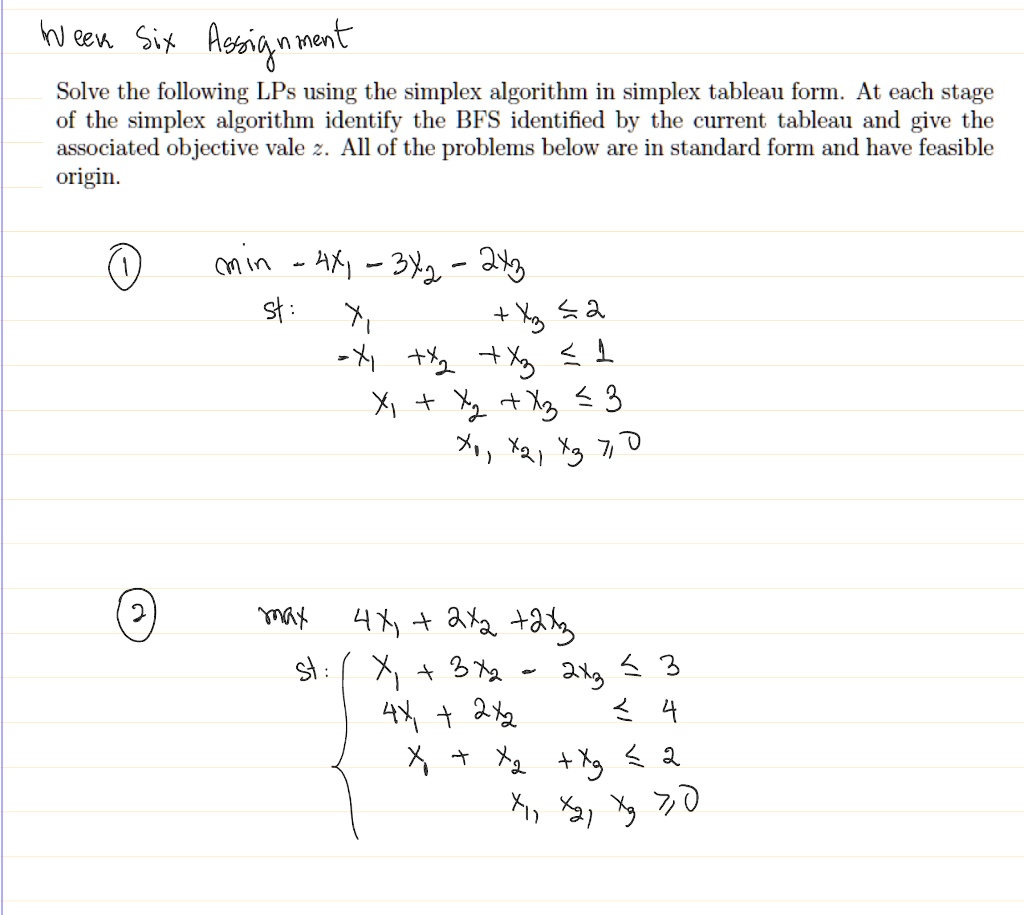 Week Six Assignment
Solve the following LPs using the simplex algorithm in simplex tableau form. At each stage
of the simplex algorithm identify the BFS identified by the current tableau and give the
associated objective vale z. All of the problems below are in standard form and have feasible
origin.
① min - 4x₁ - 3x₂ - 2x₃
st: x₁ + x₃ ≤ 2
-x₁ + x₂ + x₃ ≤ 1
x₁ + x₂ + x₃ ≤ 3
x₁, x₂, x₃ ≥ 0
② max 4x₁ + 2x₂ + 2x₃
st: { x₁ + 3x₂ - 2x₃ ≤ 3
4x₁ + 2x₂ ≤ 4
x₁ + x₂ + x₃ ≤ 2
x₁, x₂, x₃ ≥ 0